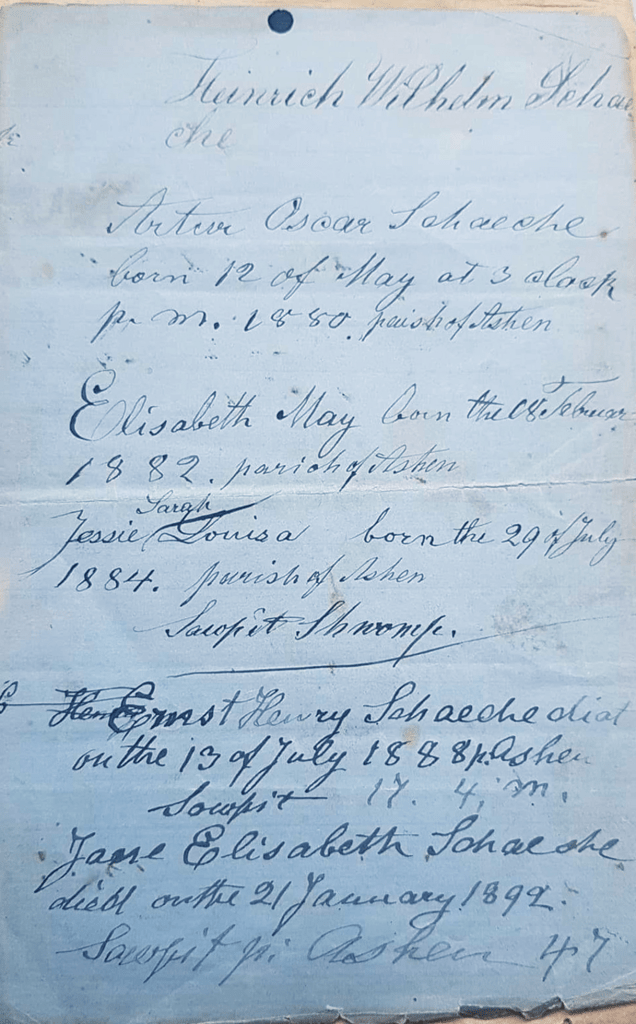 Heinrich Wilhelm Schae
che
Artur Oscar Schaeche
born 12 of May at 3 clock
p. m. 1880. parish of Ashen
Elisabeth May born the 18 Februar
1882. parich of Ashen
Sarah
Jessie Louisa born the 29 of July
1884. parish of Ashen
Sawpit
Ernst Henry Schaeche diat
on the 13 of July 1888 p. Ashen
Sowpit 17. 4. m.
Jane Elisabeth Schaeche
died on the 21 January 1892.
Sawpit p. Ashen 47